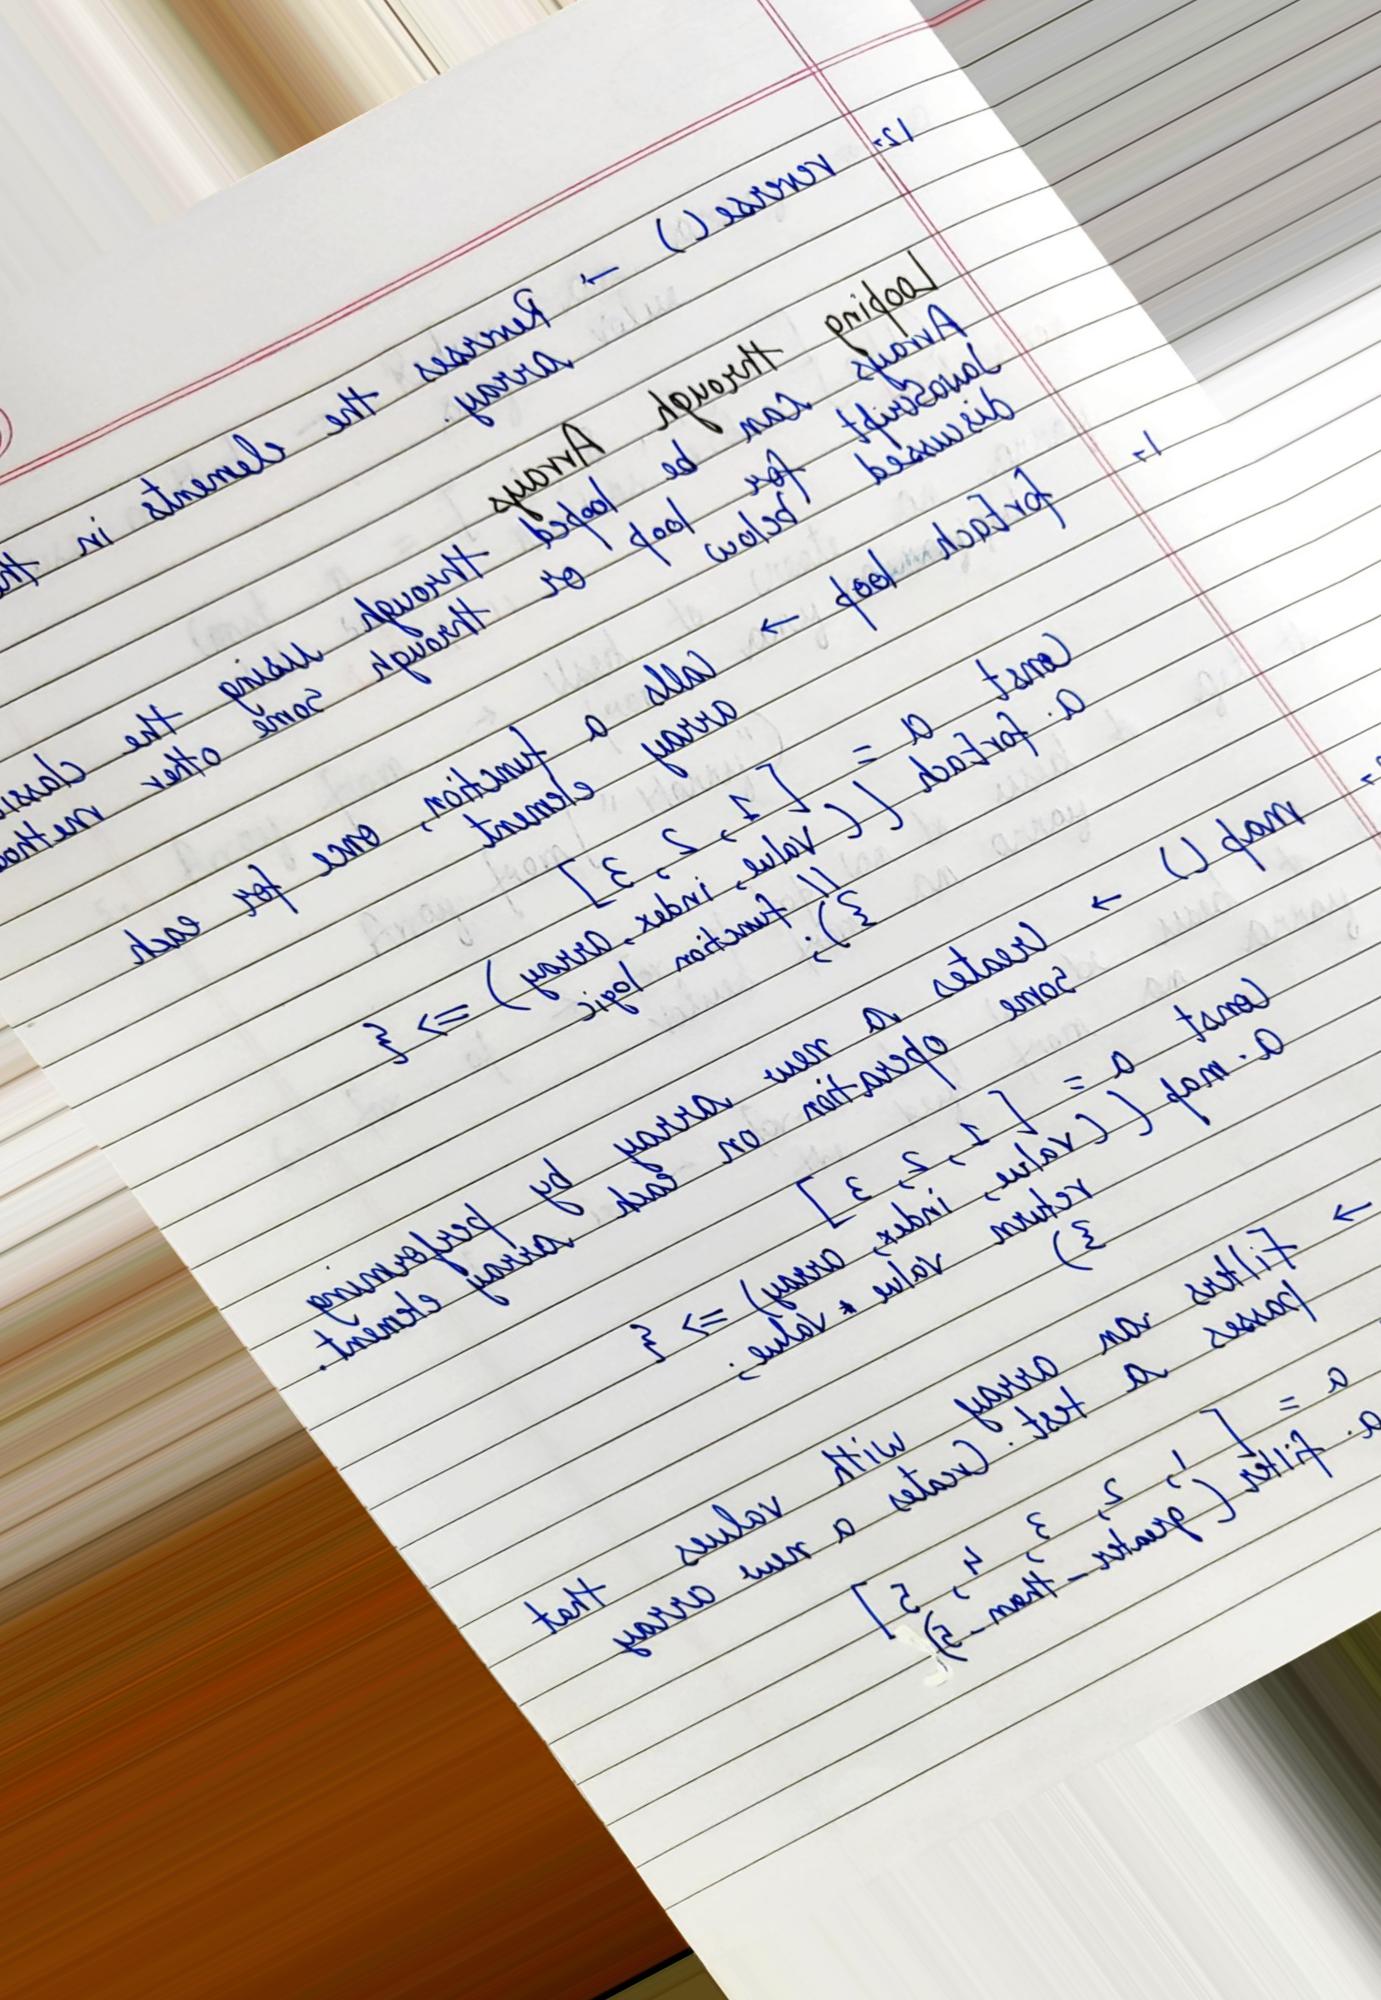 12- reverse () → Reverses the elements in the
array.
Looping through Arrays
Arrays can be looped through using the classic
JavaScript for loop or through some other
discussed below
1- forEach loop → Calls a function, once for each
array element
Const a = [1, 2, 3]
a. forEach ((value, index, array) => {
// function logic
});
map () → Creates a new array by performing
some operation on each array element.
Const a = [1, 2, 3]
a. map ((value, index, array) => {
return value * value;
})
→ filters an array with values that
passes a test. Creates a new array
a = [1, 2, 3, 4, 5]
a. filter (greater_than_5)